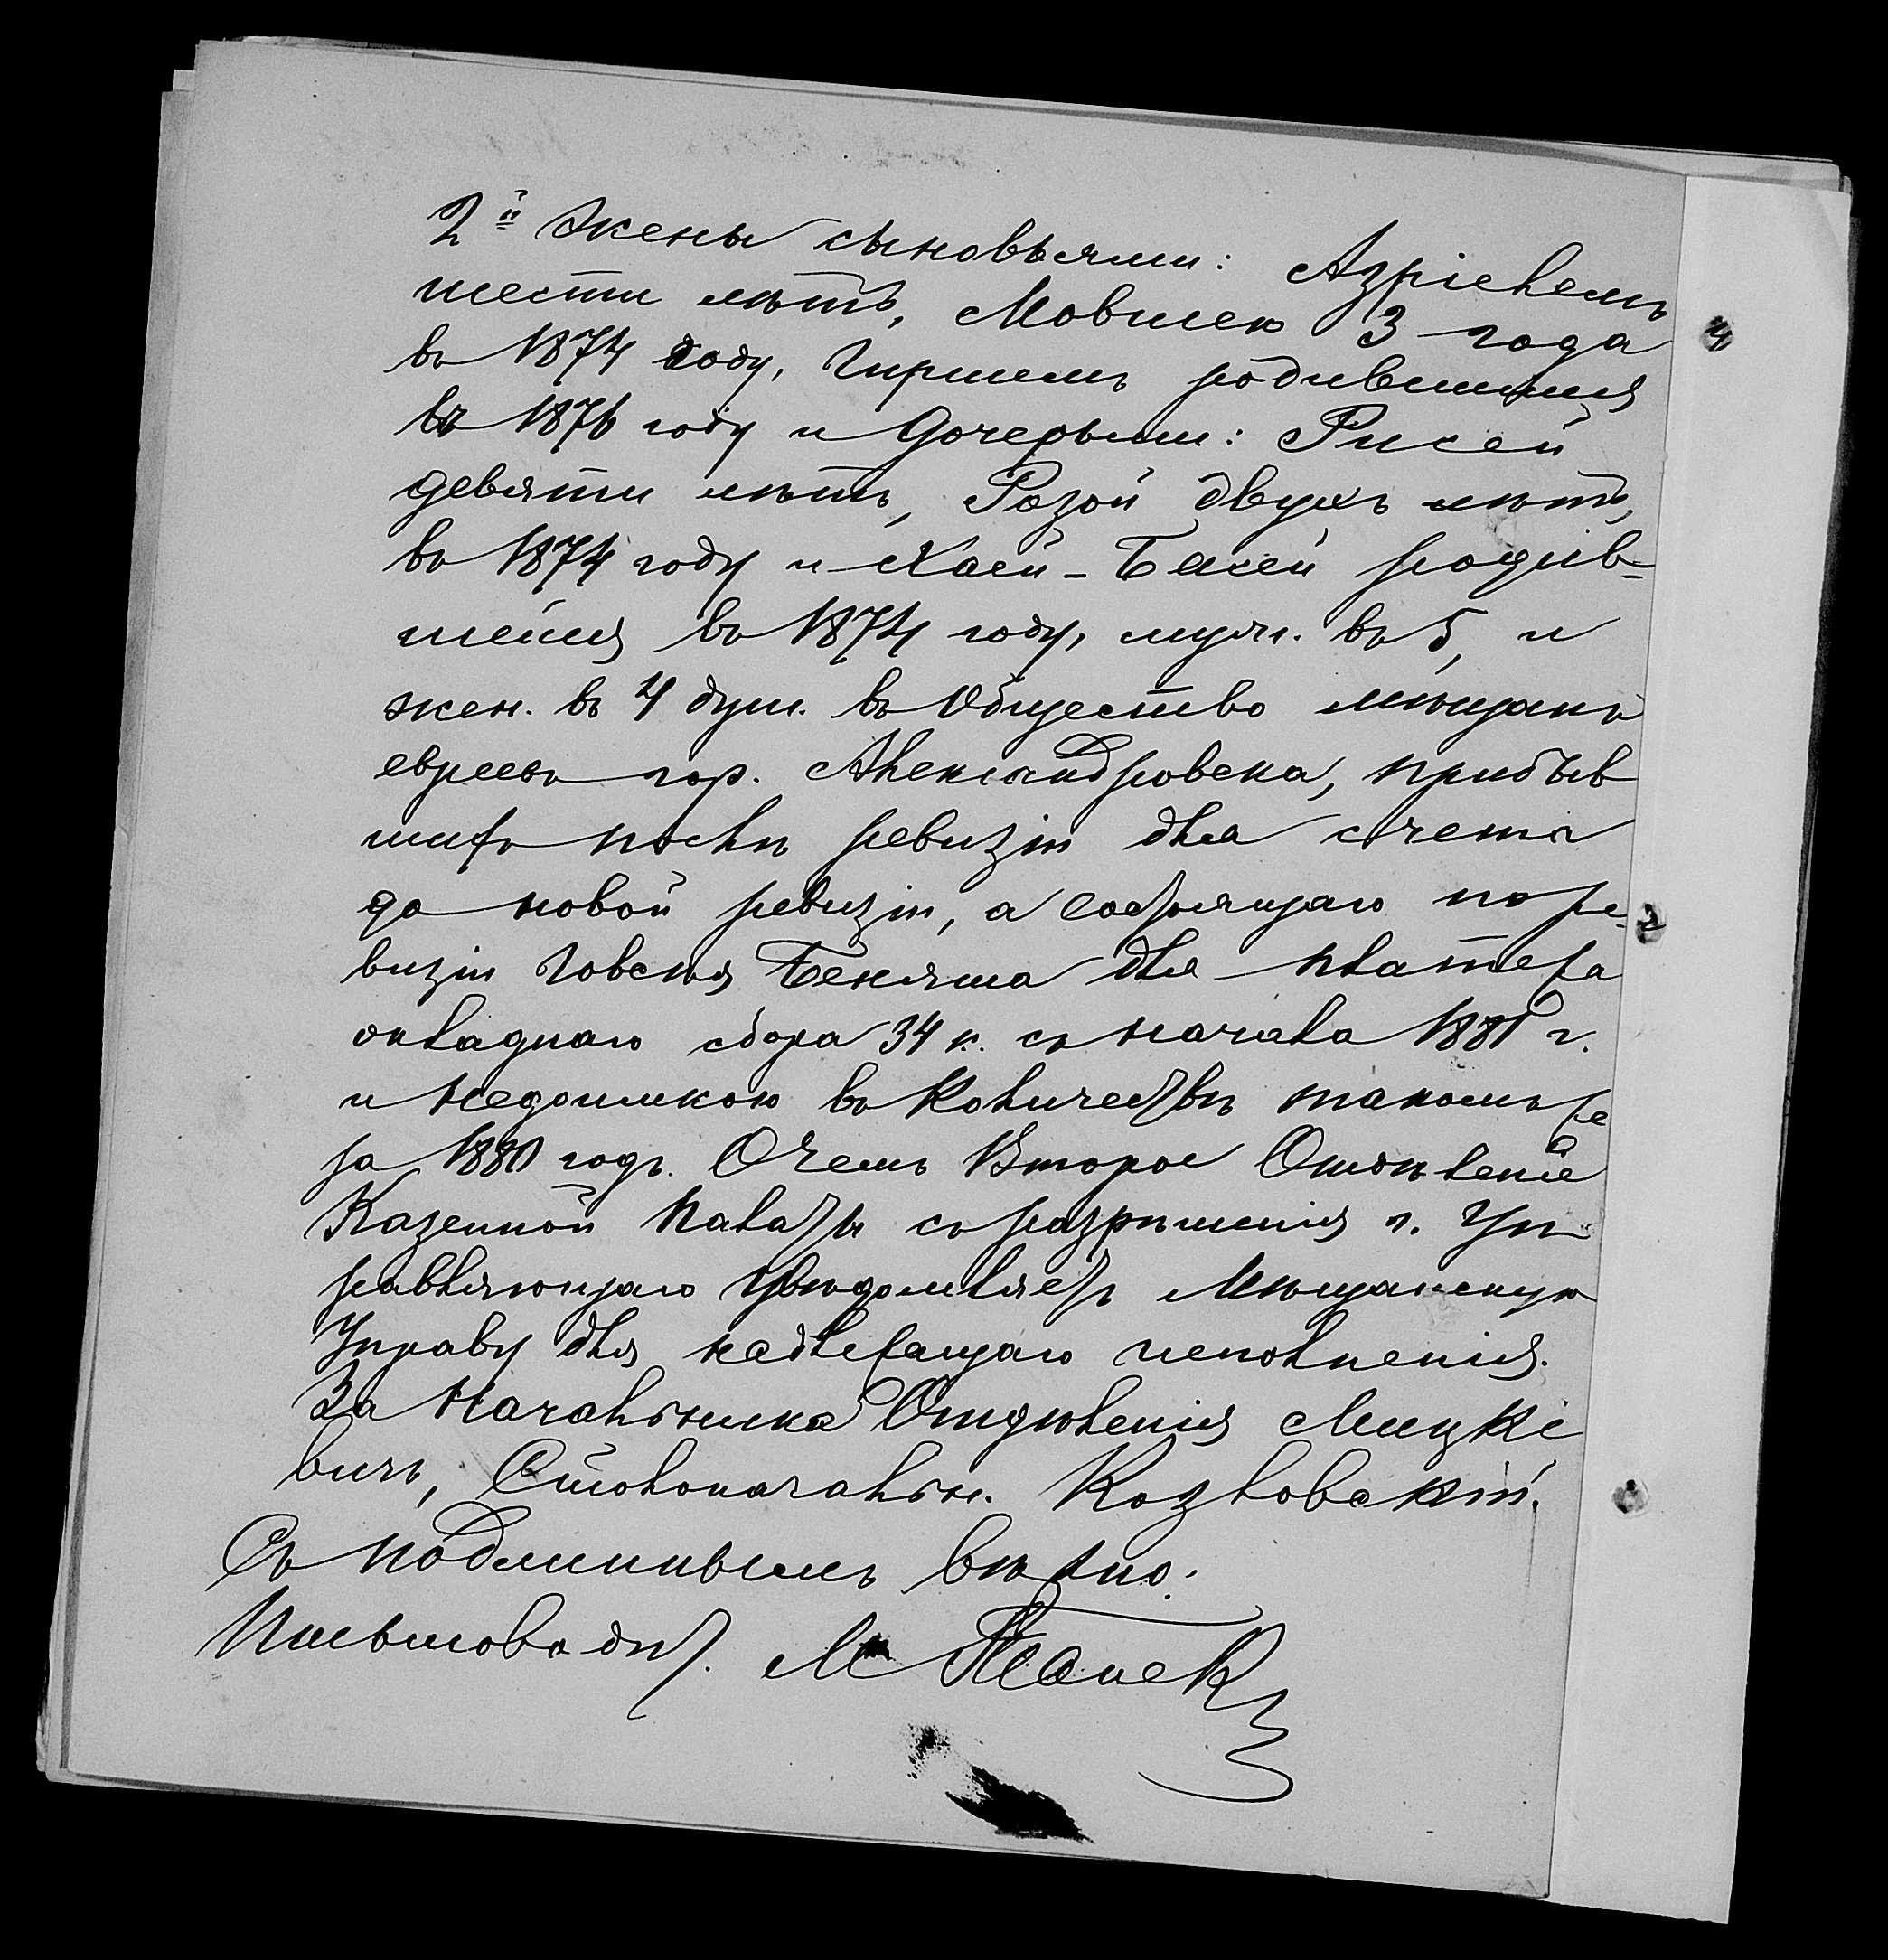 2й жены сыновьями: Азріелемъ
шести лѣтъ, Мовшею 3 года
въ 1874 году, Гиршемъ родившимся
въ 1876 году и дочерьми: Рисей
девяти лѣтъ, Розой двухъ лѣтъ,
въ 1874 году и Хаей-Басей родив-
шейся въ 1874 году, муж. въ 5, и
жен. въ 4 душ. въ общество мѣщанъ
евреевъ гор. Александровска, прибыв
шихъ послѣ ревизіи для счета
до новой ревизіи, а состоящаго по ре-
визіи Говсѣя Бекяша для платежа
окладнаго сбора 34 к. съ начала 1881 г.
и недоимкою въ количествѣ такомъ же
за 1880 годъ. О чемъ Второе Отдѣленіе
Казенной Палаты съ разрѣшенія г. Уп
равляющаго увѣдомляетъ Мѣщанскую
Управу для надлежащаго исполненія.
За Начальника Отдѣленія Мицке
вичъ, Столоначальн. Козловскій.
Съ подлиннымъ вѣрно:
Письмоводит. М